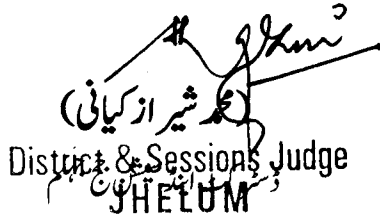 (محمد شیراز کیانی)
District & Sessions Judge
ڈسٹرکٹ اینڈ سیشن جج جہلم
JHELUM